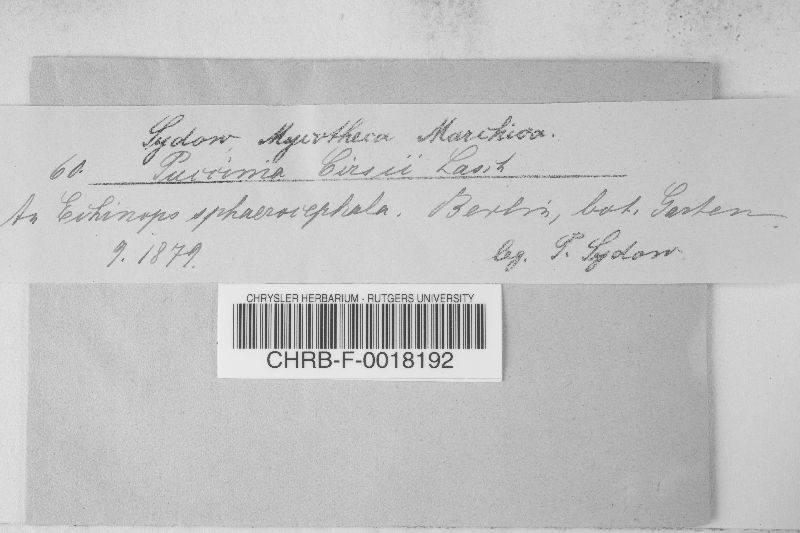 Sydow, Mycotheca Marchica.
60. Puccinia Cirsii Lasch
An Echinops sphaerocephala. Berlin, bot. Garten.
9. 1879. leg. P. Sydow
CHRYSLER HERBARIUM - RUTGERS UNIVERSITY
CHRB-F-0018192